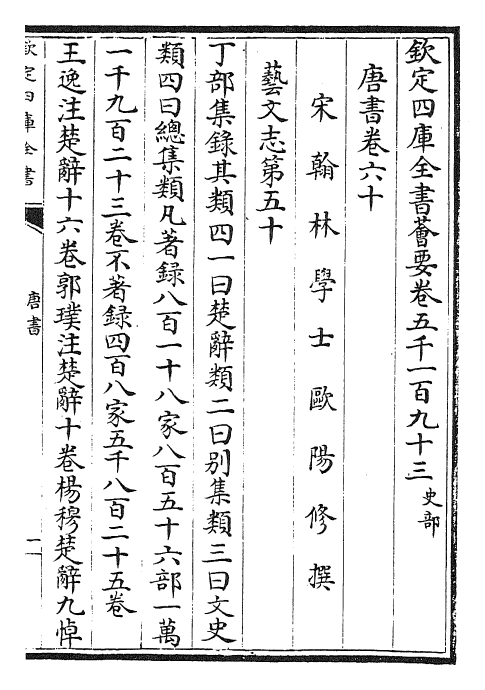 欽定四庫全書薈要卷五千一百九十三 史部
唐書卷六十
宋翰林學士歐陽修撰
藝文志第五十
丁部集錄其類四一曰楚辭類二曰别集類三曰文史
類四曰總集類凡著録八百一十八家八百五十六部一萬
一千九百二十三卷不著録四百八家五千八百二十五卷
王逸注楚辭十六卷郭璞注楚辭十卷楊穆楚辭九悼
欽定四庫全書
唐書
一